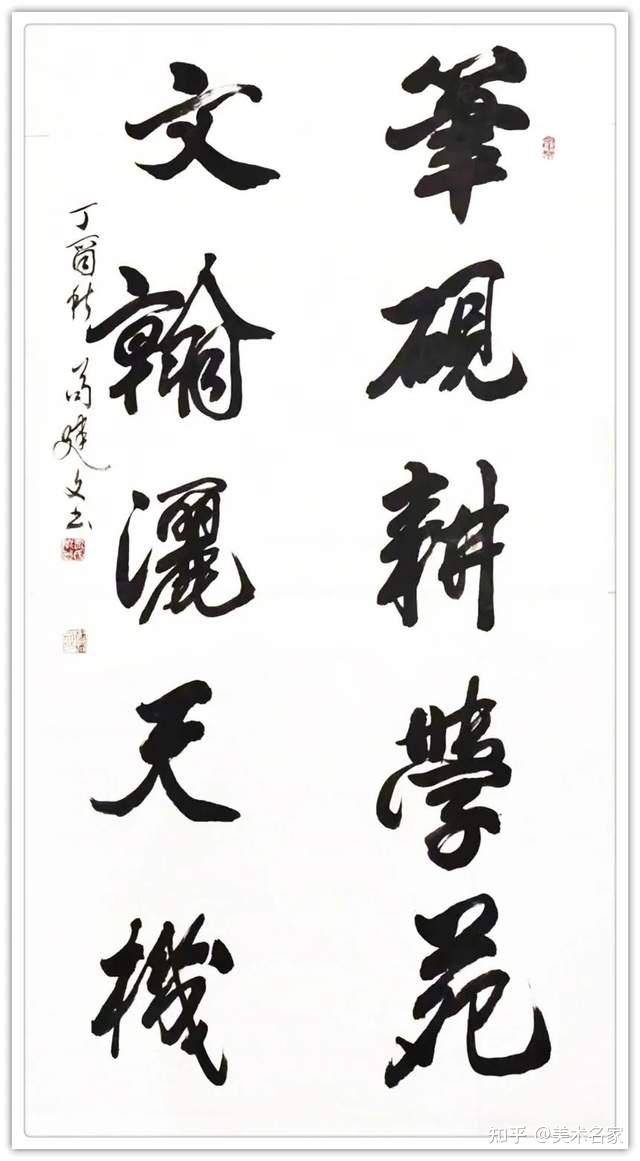 筆硯耕學苑
文翰灑天機
丁酉秋 尚建文书
知乎 @美术名家